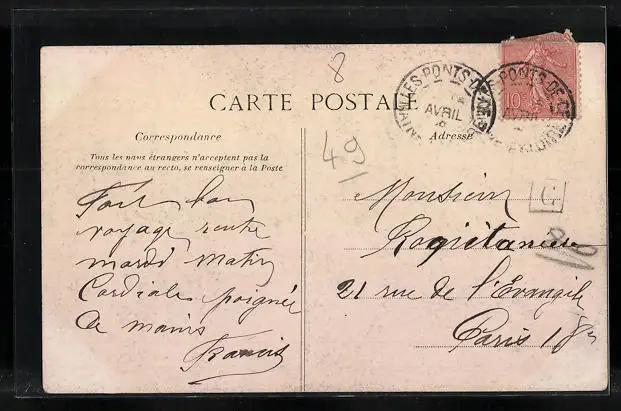 8
CARTE POSTALE
LES-PONTS-DE-CÉ
AVRIL
10
Correspondance
Adresse
49
Tous les pays étrangers n'acceptent pas la
correspondance au recto, se renseigner à la Poste
Fort bon
voyage rentre
mardi matin
Cordiale poignée
de mains
Francis
Monsieur
21 rue de l'Evangile
Paris 18e
G